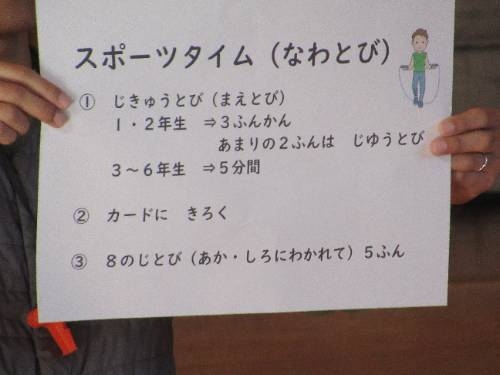 スポーツタイム（なわとび）
① じきゅうとび（まえとび）
１・２年生 ⇒３ふんかん
あまりの２ふんは じゆうとび
３～６年生 ⇒５分間
② カードに きろく
③ ８のじとび（あか・しろにわかれて）５ふん